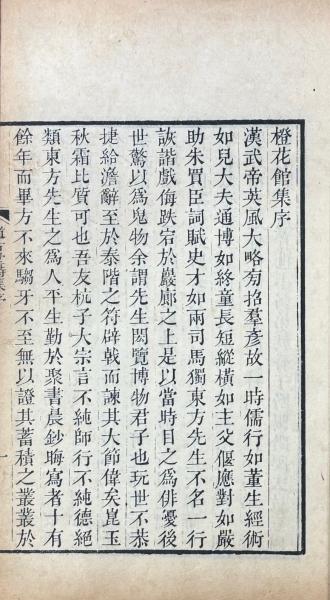 橙花館集序
漢武帝英風大略有招羣彥故一時儒行如董生經術
如兒大夫通博如終童長短縱橫如主父偃應對如嚴
助朱買臣詞賦史才如兩司馬獨東方先生不名一行
詼諧戲侮跌宕於巖廊之上是以當時目之爲俳優後
世驚以爲鬼物余謂先生閎覽博物君子也玩世不恭
捷給澹辭至於泰階之符辟戟而諫其大節偉矣崑玉
秋霜比質可也吾友杭子大宗言不純師行不純德絕
類東方先生之爲人平生勤於聚書晨鈔晦寫者十有
餘年而畢方不來騶牙不至無以證其蓄積之叢叢於
一